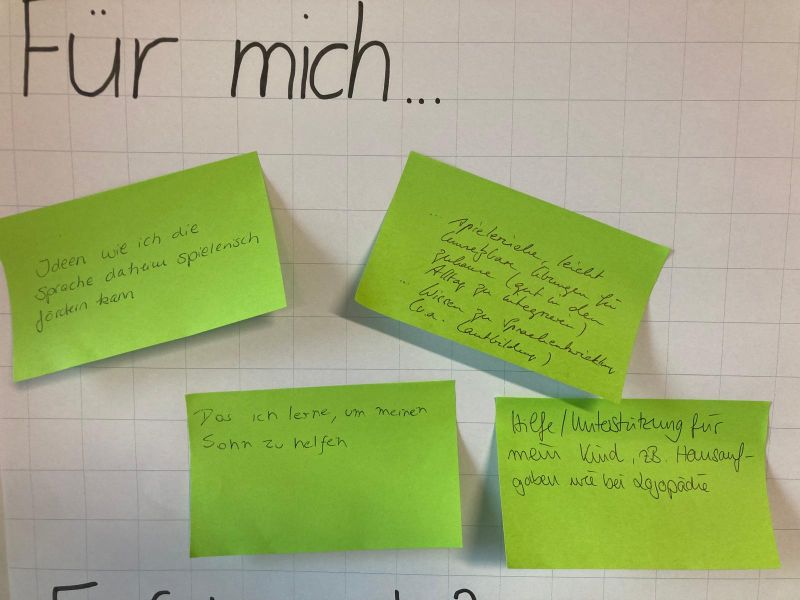 Für mich...
Ideen wie ich die
Sprache daheim spielerisch
fördern kann
... spielerische, leicht
umsetzbare Übungen für
zuhause (gut in den
Alltag zu integrieren)
... Wissen zu Sprachentwicklung
(v.a. Lautbildung)
Das ich lerne, um meinen
Sohn zu helfen
Hilfe/Unterstützung für
mein Kind, zB. Hausauf-
gaben wie bei Logopädie